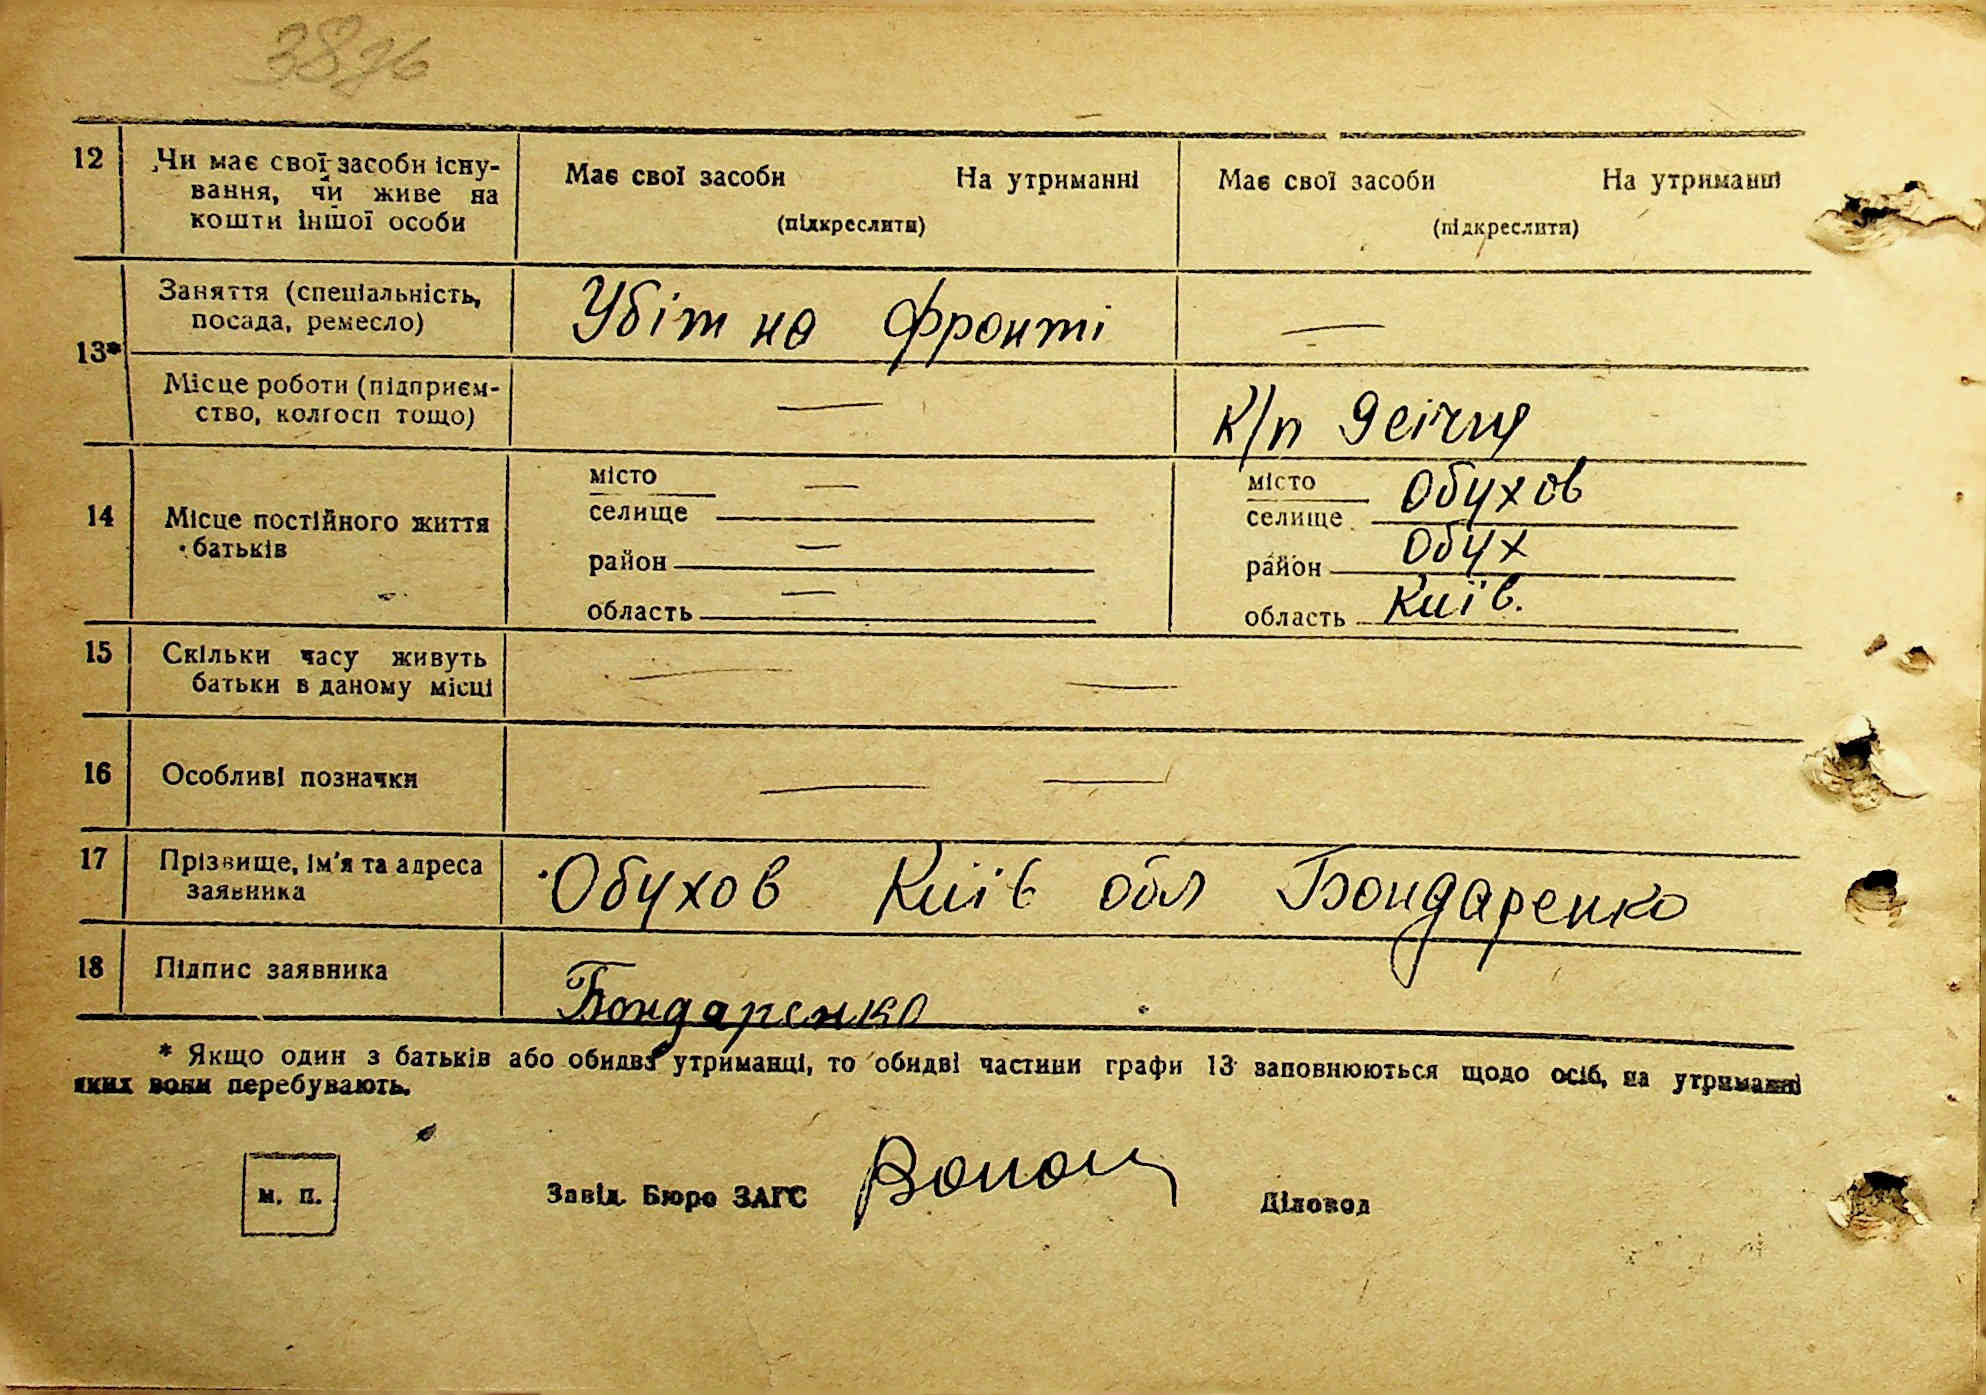 3876
12 Чи має свої засоби існу- Має свої засоби На утриманні Має свої засоби На утриманні
вання, чи живе на
кошти іншої особи (підкреслити) (підкреслити)
Заняття (спеціальність, Убіт на фронті —
посада, ремесло)
13*
Місце роботи (підприєм- — К/п
ство, колгосп тощо)
місто — місто Обухов
14 Місце постійного життя селище селище
батьків район — район Обух
область — область Київ.
15 Скільки часу живуть — —
батьки в даному місці
16 Особливі позначки — —
17 Прізвище, ім'я та адреса Обухов Київ обл Бондаренко
заявника
18 Підпис заявника Бондаренко
* Якщо один з батьків або обидва утриманці, то обидві частини графи 13 заповнюються щодо осіб, на утриманні
яких вони перебувають.
м. п. Завід. Бюро ЗАГС Діловод